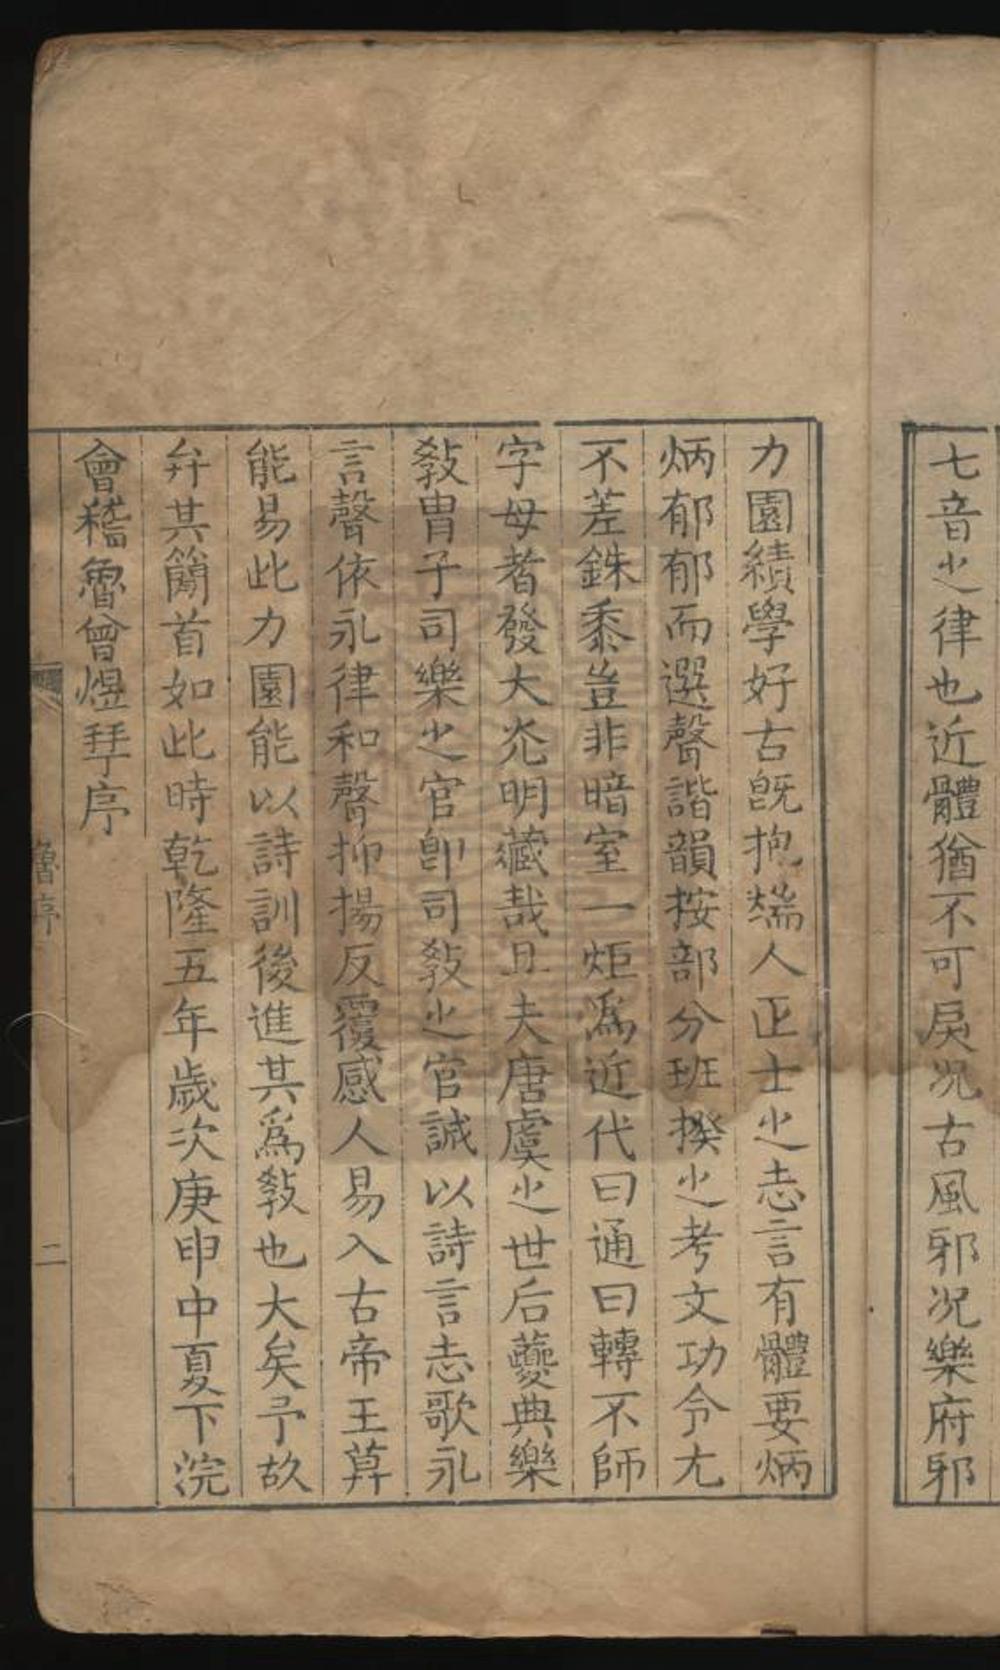 七音之律也近體猶不可戾况古風邪况樂府邪
力園績學好古旣抱端人正士之志言有體要炳
炳郁郁而選聲諧韻按部分班揆之考文功令尤
不差銖黍豈非暗室一炬爲近代曰通曰轉不師
字母者發大光明藏哉且夫唐虞之世后夔典樂
敎胄子司樂之官卽司敎之官誠以詩言志歌永
言聲依永律和聲抑揚反覆感人易入古帝王算
能易此力園能以詩訓後進其爲敎也大矣予故
弁其簡首如此時乾隆五年歲次庚申中夏下浣
會稽魯曾煜拜序
魯序
二